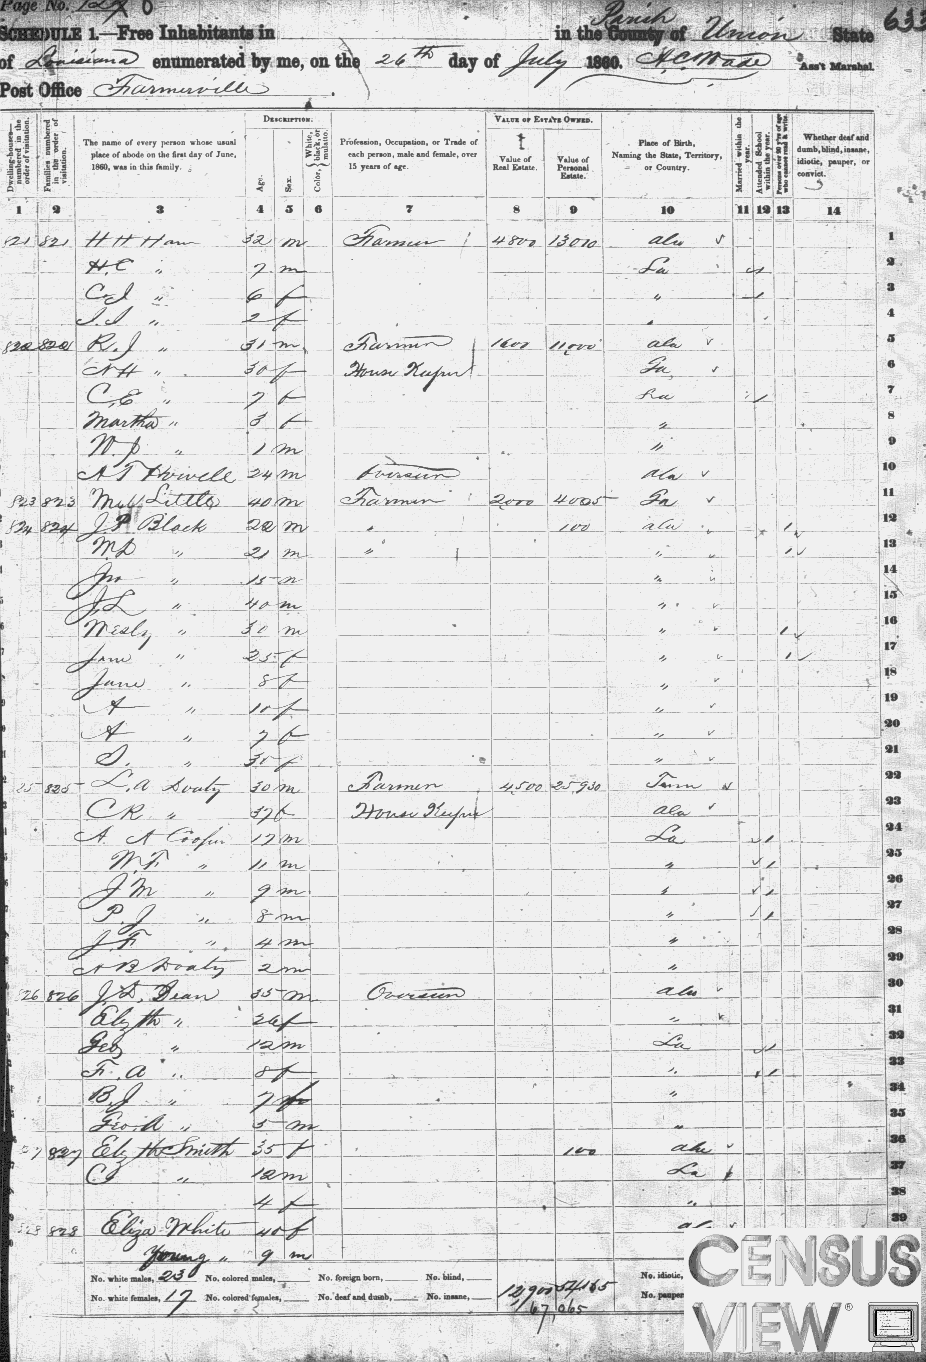 Page No. 120
633
SCHEDULE 1.—Free Inhabitants in in the County of Parish Union State
of Louisiana enumerated by me, on the 26th day of July 1860. H.C. Wade Ass't Marshal.
Post Office Farmerville
DESCRIPTION. VALUE OF ESTATE OWNED.
Dwelling-houses numbered in the order of visitation. Families numbered in the order of visitation. The name of every person whose usual place of abode on the first day of June, 1860, was in this family. Age. Sex. Color, White, black, or mulatto. Profession, Occupation, or Trade of each person, male and female, over 15 years of age. Value of Real Estate. Value of Personal Estate. Place of Birth, Naming the State, Territory, or Country. Married within the year. Attended School within the year. Persons over 20 y'rs of age who cannot read & write. Whether deaf and dumb, blind, insane, idiotic, pauper, or convict.
1 2 3 4 5 6 7 8 9 10 11 12 13 14
821 821 H H Ham 32 m Farmer 4800 13000 ala 1
H.C " 7 m La 2
C.J " 6 f " 3
" 2 f " 4
822 822 R.J " 31 m Farmer 1600 11000 ala 5
N H " 30 f House Keeper Ga 6
C,E " 7 f La 7
Martha " 3 f " 8
W.J " 1 m " 9
A T Howell 24 m Overseer ala 10
823 823 Little 40 m Farmer 2000 4005 Ga 11
824 824 J.P Black 22 m " 100 ala 12
M.D " 21 m " " 13
Jno " 15 m " 14
J.L " 40 m " 15
Wesly " 30 m " 16
Jane " 25 f " 17
Jane " 8 f " 18
A " 10 f " 19
A " 7 f " 20
S. " 35 f " 21
25 825 L.A Doaty 30 m Farmer 4500 25930 Tenn 22
C R " 37 f House Keeper ala 23
A. A Cooper 17 m La 24
W.F " 11 m " 25
J M " 9 m " 26
P.J " 8 m " 27
J.F " 4 m " 28
A B Doaty 2 m " 29
26 826 J.D. Dean 35 m Overseer ala 30
Elizth " 26 f " 31
Geo " 12 m La 32
F. A " 8 f " 33
B.J " 7 " 34
Geo.A " 5 m " 35
27 827 Eliz th Smith 35 f 100 ala 36
C " 12 m La 37
4 f " 38
828 828 Eliza White 40 f al 39
Young " 9 m
No. white males, 23 No. colored males, No. foreign born, No. blind, No. idiotic,
No. white females, 17 No. colored females, No. deaf and dumb, No. insane, 12,900 54165 No. pauper
67,065
CENSUS
VIEW®